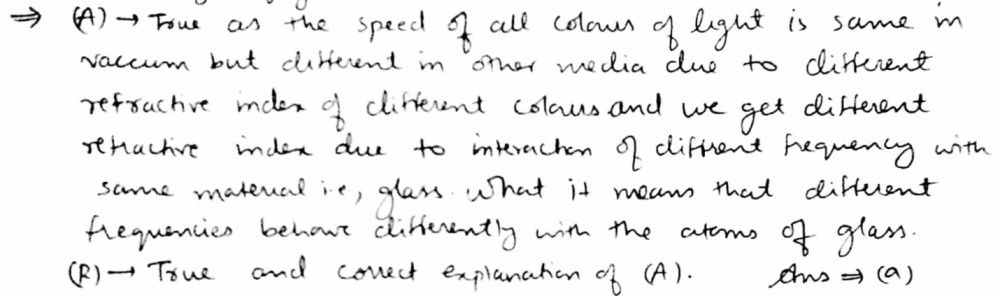 ⇒ (A) → True as the speed of all colours of light is same in
vaccum but different in other media due to different
refractive index of different colours and we get different
refractive index due to interaction of diffrent frequency with
same material i.e, glass. What it means that different
frequencies behave differently with the atoms of glass.
(R) → True and correct explanation of (A). Ans ⇒ (a)